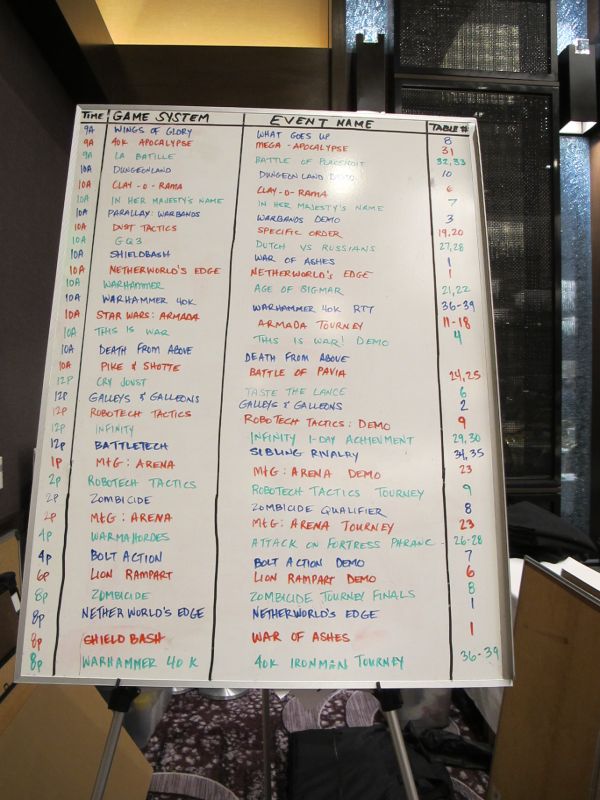 TIME GAME SYSTEM EVENT NAME TABLE #
9A WINGS OF GLORY WHAT GOES UP 8
9A 40K APOCALYPSE MEGA-APOCALYPSE 31
9A LA BATILLE BATTLE OF 32,33
10A DUNGEONLAND DUNGEONLAND DEMO 10
10A CLAY-O-RAMA CLAY-O-RAMA 6
10A IN HER MAJESTY'S NAME IN HER MAJESTY'S NAME 7
10A PARALLAX: WARBANDS WARBANDS DEMO 3
10A DUST TACTICS SPECIFIC ORDER 19,20
10A GQ3 DUTCH VS RUSSIANS 27,28
10A SHIELDBASH WAR OF ASHES 1
10A NETHERWORLD'S EDGE NETHERWORLD'S EDGE 1
10A WARHAMMER AGE OF SIGMAR 21,22
10A WARHAMMER 40K WARHAMMER 40K RTT 36-39
10A STAR WARS: ARMADA ARMADA TOURNEY 11-18
10A THIS IS WAR THIS IS WAR! DEMO 4
10A DEATH FROM ABOVE DEATH FROM ABOVE
10A PIKE & SHOTTE BATTLE OF PAVIA 24,25
12P CRY JOUST TASTE THE LANCE 6
12P GALLEYS & GALLEONS GALLEYS & GALLEONS 2
12P ROBOTECH TACTICS ROBOTECH TACTICS: DEMO 9
12P INFINITY INFINITY 1-DAY ACHIEVMENT 29,30
12P BATTLETECH SIBLING RIVALRY 34,35
1P MtG: ARENA MtG: ARENA DEMO 23
2P ROBOTECH TACTICS ROBOTECH TACTICS TOURNEY 9
2P ZOMBICIDE ZOMBICIDE QUALIFIER 8
2P MtG: ARENA MtG: ARENA TOURNEY 23
4P WARMAHORDES ATTACK ON FORTRESS PHRANC - 26-28
4P BOLT ACTION BOLT ACTION DEMO 7
6P LION RAMPART LION RAMPART DEMO 6
8P ZOMBICIDE ZOMBICIDE TOURNEY FINALS 8
8P NETHERWORLD'S EDGE NETHERWORLD'S EDGE 1
8P SHIELD BASH WAR OF ASHES 1
8P WARHAMMER 40K 40K IRONMAN TOURNEY 36-39